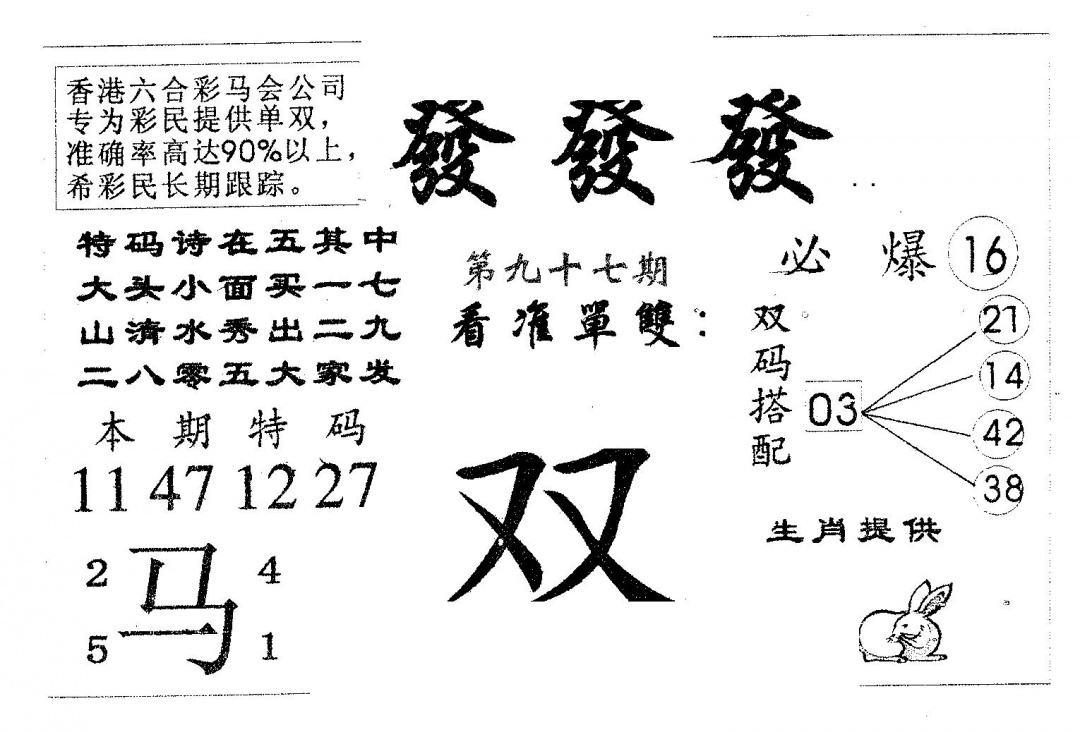 香港六合彩马会公司
专为彩民提供单双，
准确率高达90%以上，
希彩民长期跟踪。
發 發 發
特码诗在五其中
大头小面买一七
山清水秀出二九
二八零五大家发
本期特码
11 47 12 27
2 4
马
5 1
第九十七期
看准單雙：
双
必爆 16
双码搭配
03
21
14
42
38
生肖提供